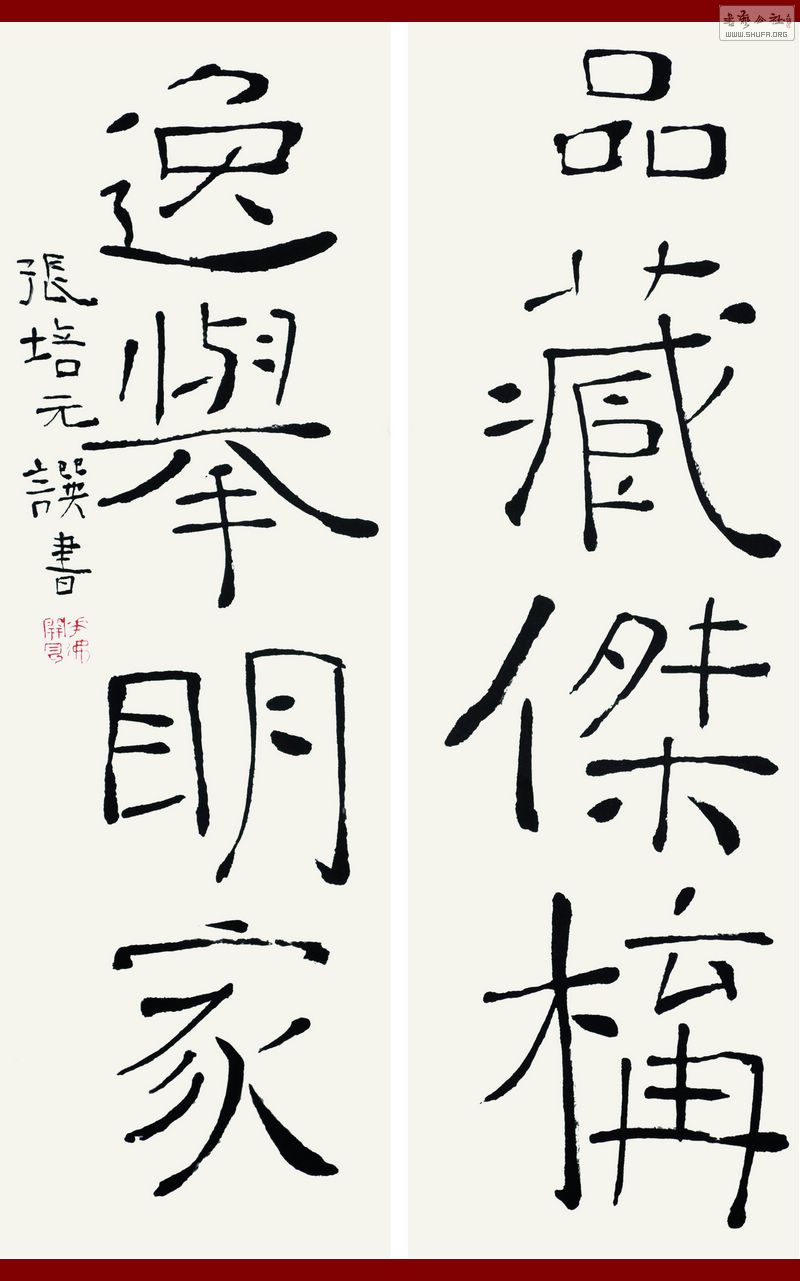 品藏傑構
逸舉明家
張培元譔書
WWW.SHUFA.ORG